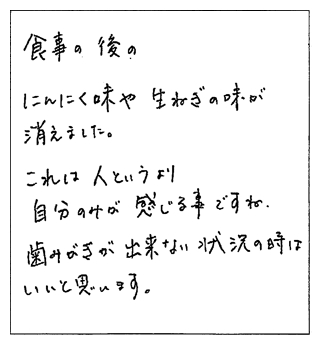 食事の後の
にんにく味や 生ねぎの味が
消えました。
これは 人というより
自分のみが 感じる事ですね.
歯みがきが 出来ない 状況の時は
いいと思います。